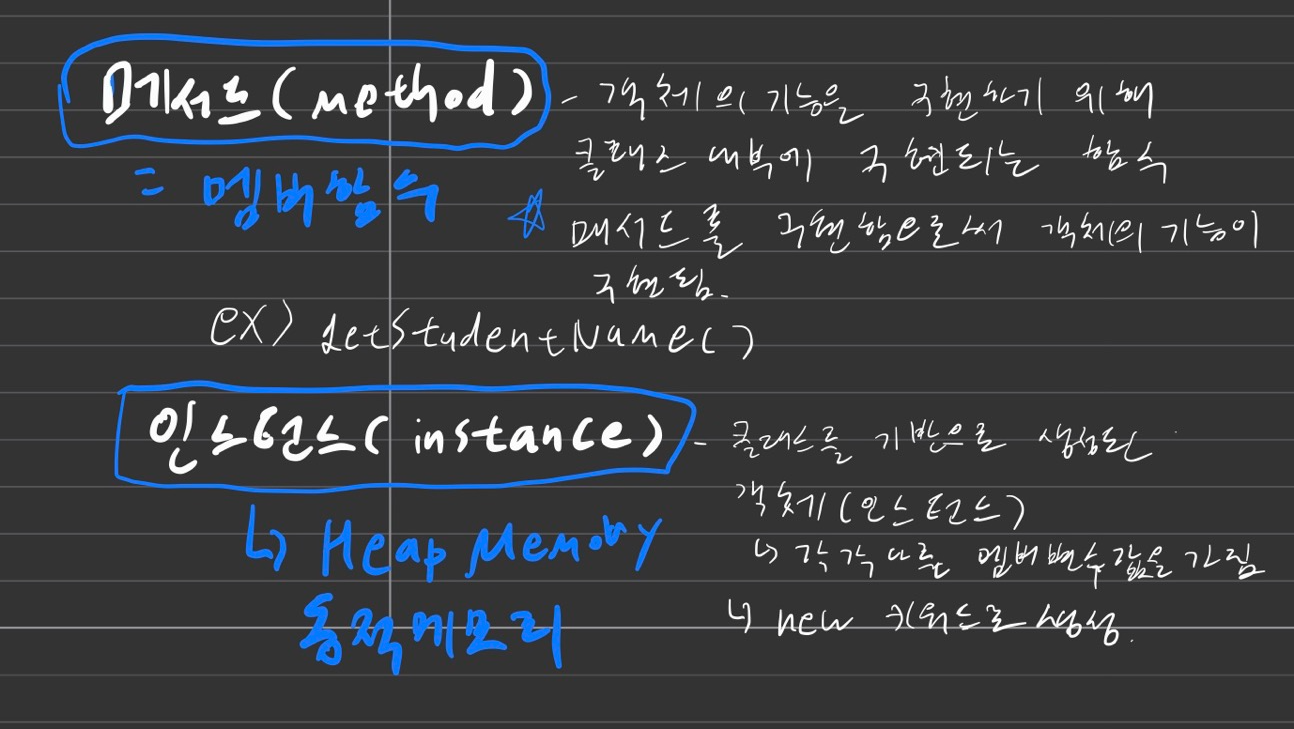 메서드(method) - 객체의 기능을 구현하기 위해
클래스 내부에 구현되는 함수
= 멤버함수
☆ 메서드를 구현함으로써 객체의 기능이
구현됨.
ex) getStudentName()
인스턴스(instance) - 클래스를 기반으로 생성된
객체(인스턴스)
↳ Heap Memory
동적메모리
↳ 각각 다른 멤버변수값을 가짐
↳ new 키워드로 생성.